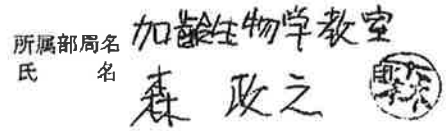 所属部局名 加齢生物学教室
氏 名 森 政之